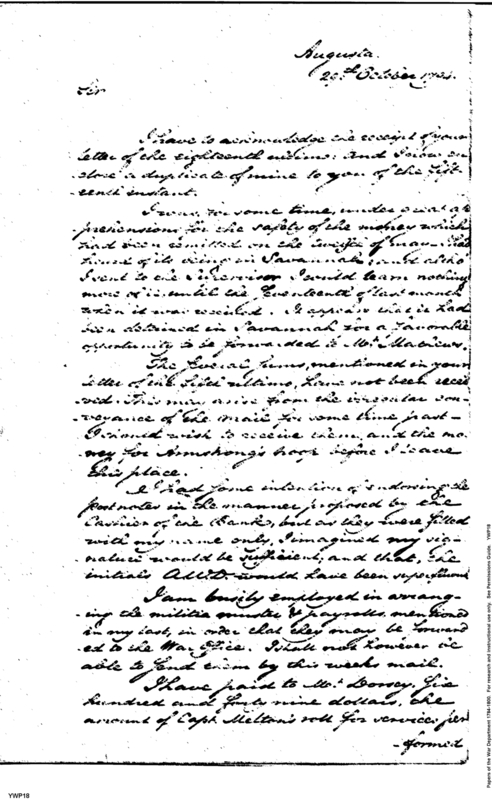 Augusta
29th October 1794.
Sir
I have to acknowledge the receipt of your
letter of the eighteenth ultimo: And I now en
close a duplicate of mine to you of the fif-
teenth instant.
I was, for some time, under great ap
prehensions for the safety of the money which
had been remitted on the twelfth of may. I had
heard of its being in Savannah, and altho'
I sent to the Supervisor I could learn nothing
more of it until the seventeenth of last month
when it was received. It appears that it had
been detained in Savannah for a favorable
opportunity to be forwarded to Mr. Mathews.
The several sums, mentioned in your
letter of the fifth ultimo, have not been recei
ved. This may arise from the irregular con-
veyance of the mail for some time past—
I should wish to receive them, and the mo
ney for Armstrong's troop before I leave
this place.
I had some intention of endorsing the
post notes in the manner proposed by the
Cashier of the Bank, but as they were filled
with my name only, I imagined my sig-
nature would be sufficient; and that, the
initials would have been superfluous
I am busily employed in arrang-
ing the militia muster & payrolls, mentioned
in my last, in order that they may be forward
ed to the War Office. I shall not however be
able to send them by this weeks mail.
I have paid to Mr. Dorsey, five
hundred and forty nine dollars, the
amount of Capt. Melton's roll for services per
-formed
YWP18
Papers of the War Department 1784-1800. For research and instructional use only. See Permissions Guide. YWP18